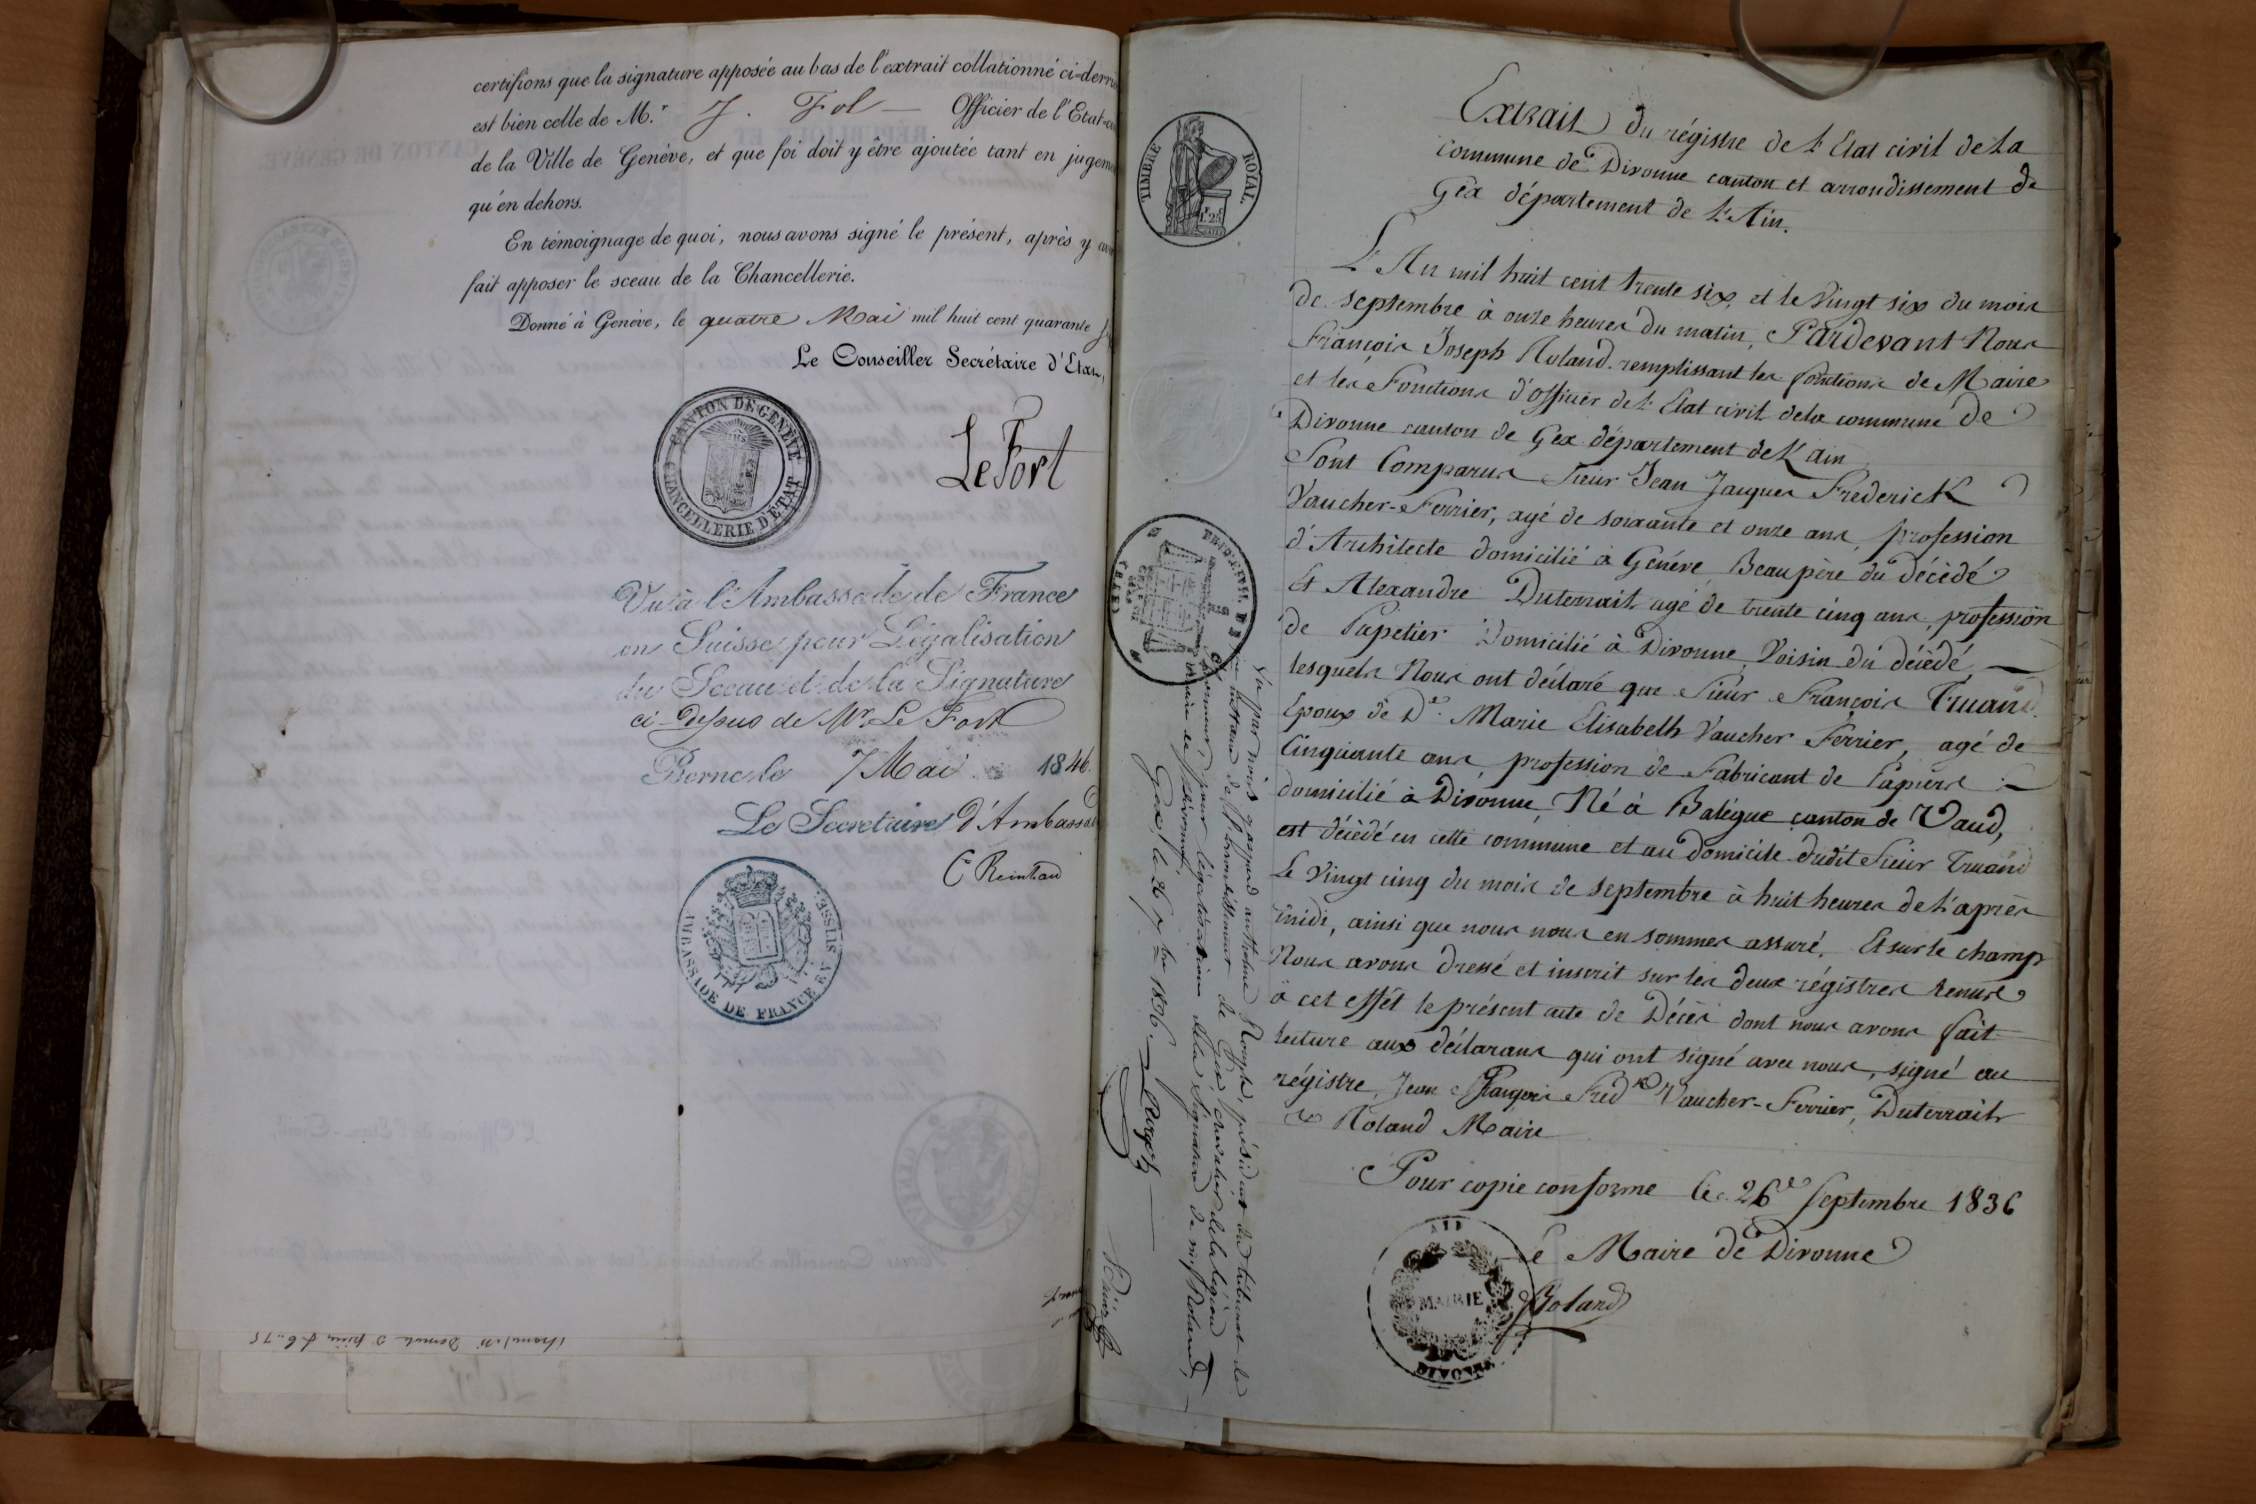 certifions que la signature apposée au bas de l'extrait collationné ci-derri
est bien celle de M.r J. Fol — Officier de l'Etat-ci
de la Ville de Genève, et que foi doit y être ajoutée tant en jugeme
qu'en dehors.
En témoignage de quoi, nous avons signé le présent, après y avoi
fait apposer le sceau de la Chancellerie.
Donné à Genève, le quatre Mai mil huit cent quarante
Le Conseiller Secrétaire d'Etat,
CANTON DE GENÈVE
CHANCELLERIE D'ETAT
Le Fort
Vu à l'Ambassade de France
en Suisse pour Légalisation
du Sceau et de la Signature
ci-dessus de Mr. Le Fort
Berne le 7 Mai 1846.
Le Secrétaire d'Ambassad
AMBASSADE DE FRANCE EN SUISSE.
TIMBRE ROYAL.
Extrait du régistre de L'Etat civil de la
commune de Divonne canton et arrondissement de
Gex département de L'Ain.
L'An mil huit cent trente six, et le vingt six du mois
de septembre à onze heures du matin, Pardevant Nous
François Joseph Roland remplissant les fonctions de Maire
et les Fonctions d'officier de L'Etat civil de la commune de
Divonne canton de Gex département de L'ain
Sont Comparus Sieur Jean Jacques Frederick
Vaucher-Ferrier, agé de soixante et onze ans, profession
d'Architecte domicilié à Genéve Beaupère du décédé
Et Alexandre Duterrait agé de trente cinq ans, profession
de Papetier Domicilié à Divonne, Voisin du décédé —
lesquels Nous ont déclaré que Sieur François Truand
Epoux de De. Marie Elisabeth Vaucher Ferrier, agé de
Cinquante ans profession de Fabricant de Papiers
domicilié à Divonne, Né à Balégue canton de Vaud,
est décédé en cette commune et au domicile dudit Sieur Truand
Le Vingt cinq du mois de septembre à huit heures de L'après
midi, ainsi que nous nous en sommes assuré. Et sur le champ
Nous avons dressé et inscrit sur les deux régistres tenus
à cet effet le présent acte de Décès dont nous avons fait
lecture aux déclarans qui ont signé avec nous, signé au
régistre, Jean Jaques Fredk Vaucher-Ferrier, Duterrait
& Roland Maire
Pour copie conforme le 26e Septembre 1836
Le Maire de Divonne
Roland
MAIRIE
DIVONNE
Vu par nous gaspard anthelme Rouph, président du tribunal de
1ere instance de l'arrondissement de Gex, chevalier de la légion
d'honneur, pour légalisation de la signature de mr. Roland,
maire de Divonne,
Gex, le 26 7bre 1836.